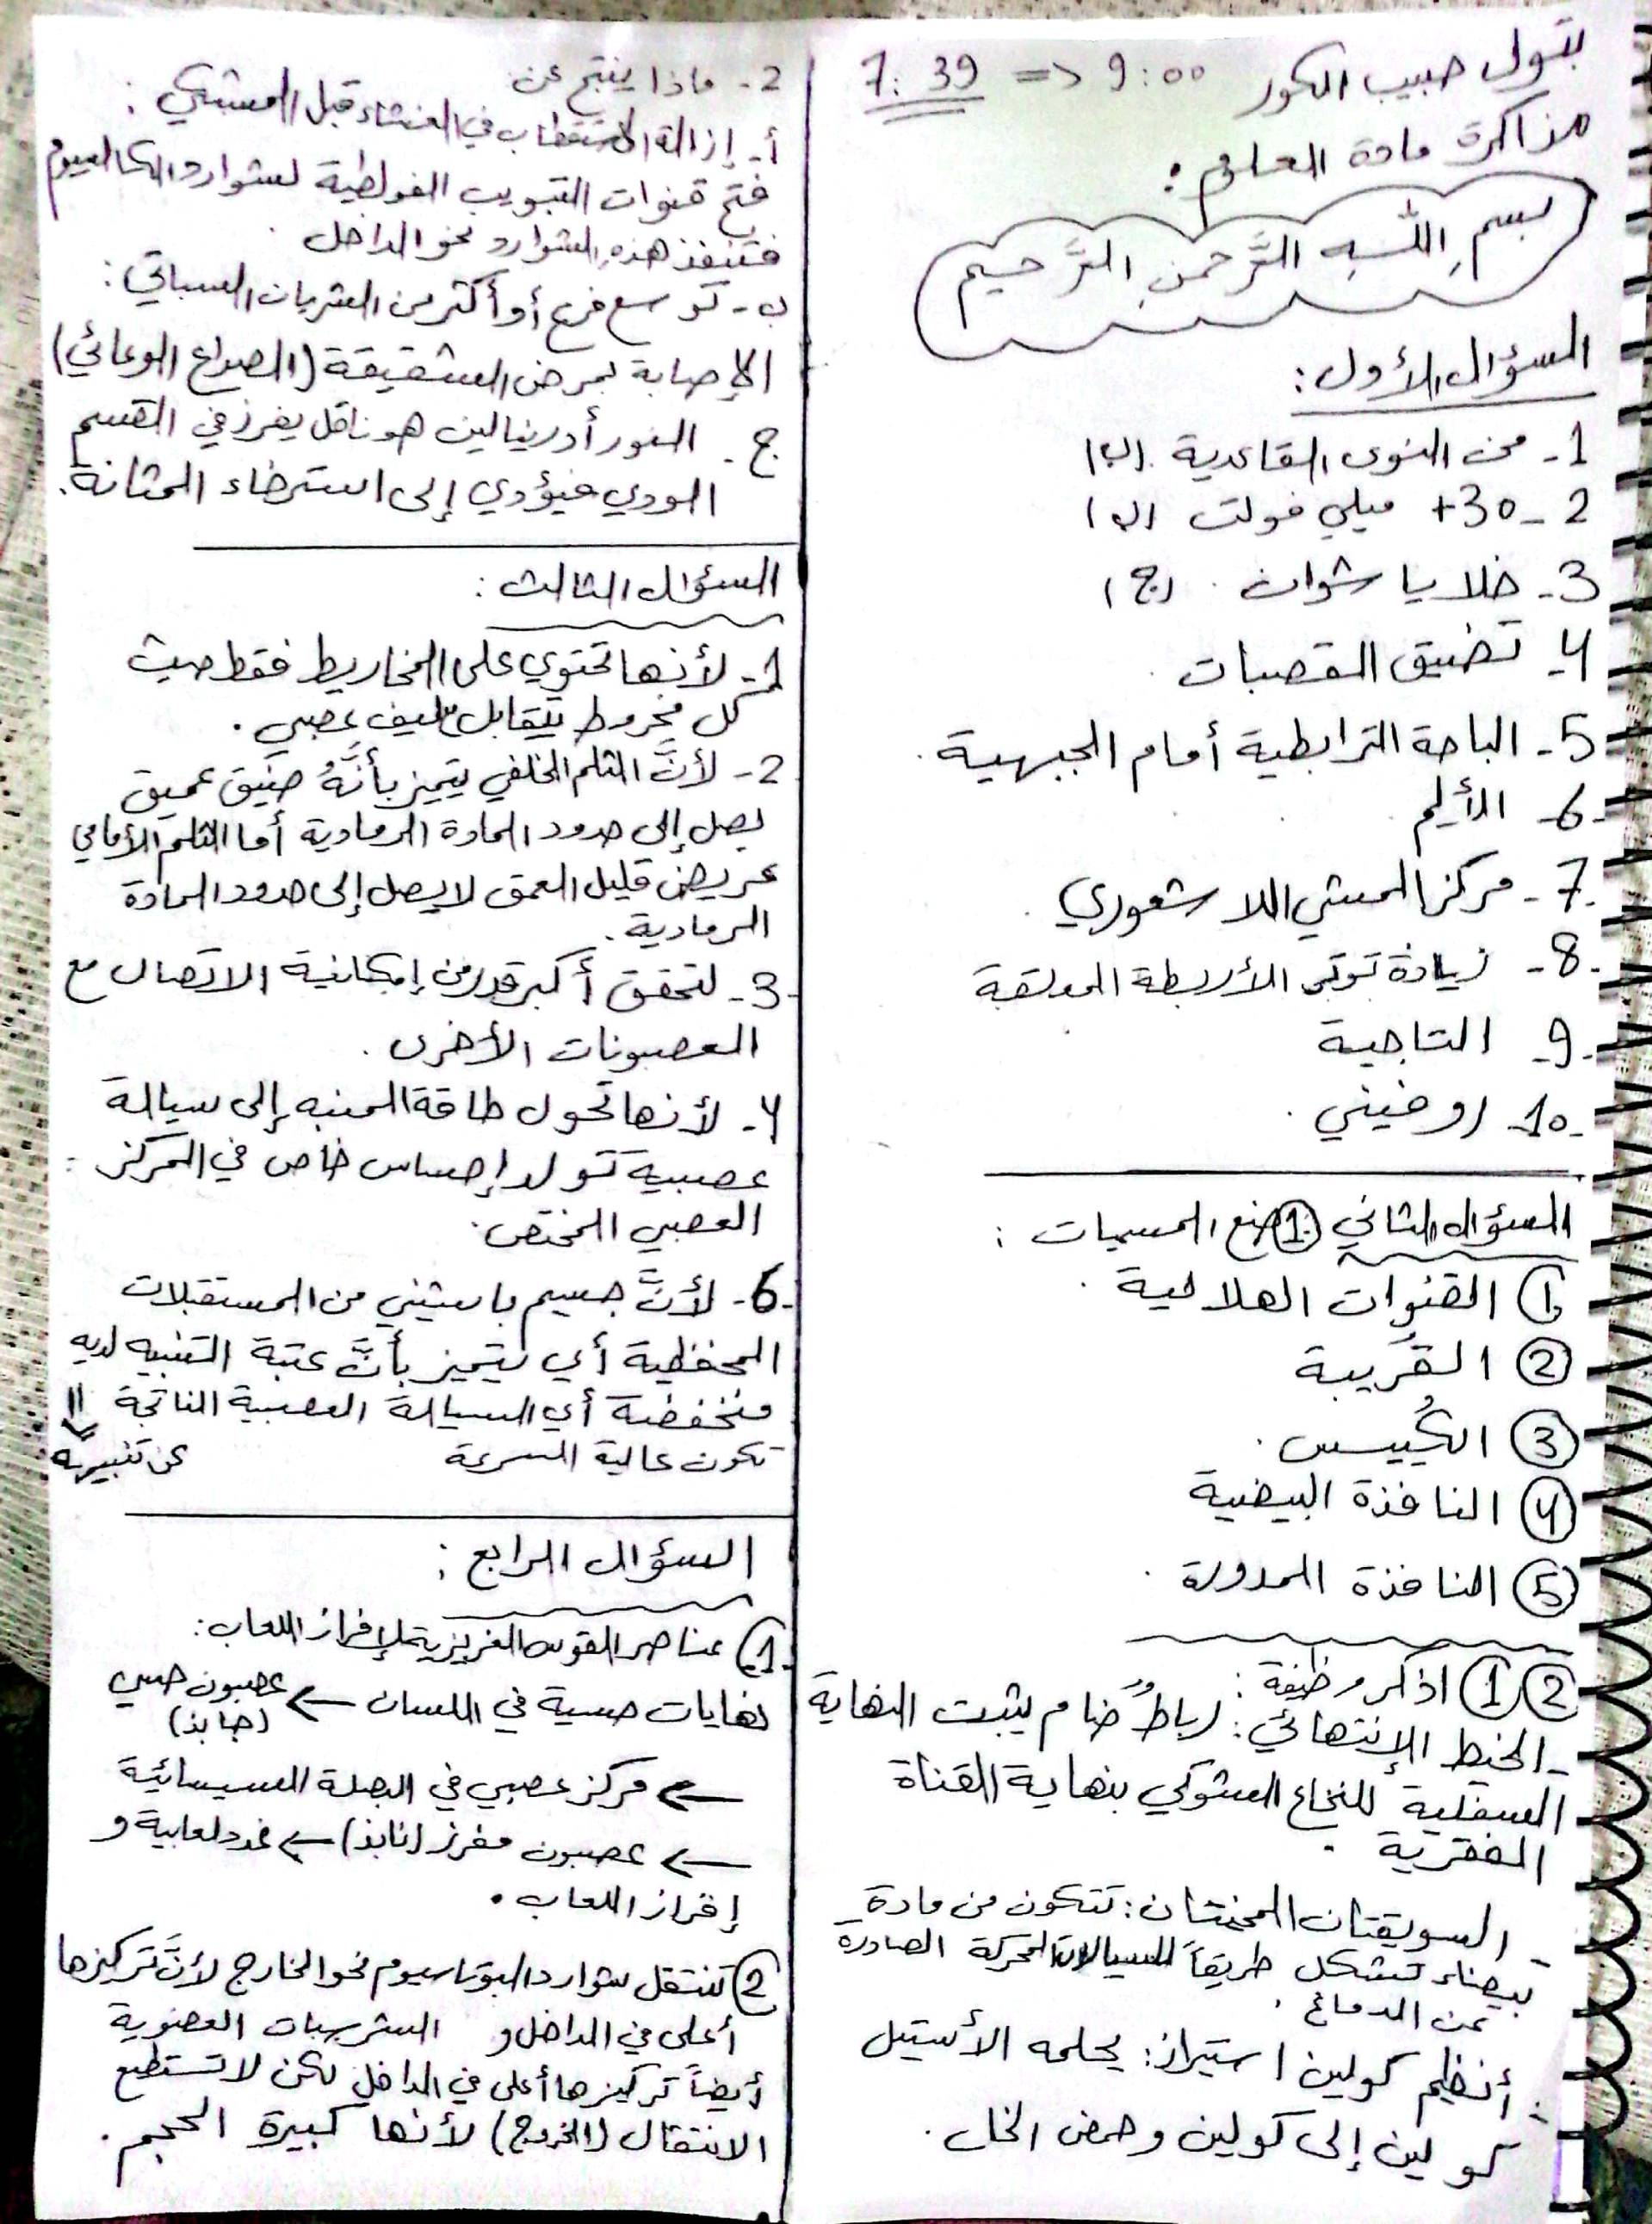 بتول حبيب الكور 9:00 => 7:39
مذاكرة مادة العلوم :
بسم الله الرَّحمن الرَّحيم
السؤال الأول :
1- من النوى القاعدية (ب)
2- +30 ميلي فولت (ب)
3- خلايا شوان (ج)
4- تضيق القصبات
5- الباحة الترابطية أمام الجبهية .
6- الأليم
7- مركز المشي اللا شعوري .
8- زيادة توتر الأربطة المعلقة
9- التاجية
10- روفيني .
السؤال الثاني ① ضع المسميات :
① القنوات الهلالية .
② القُريبة
③ الكُييس .
④ النافذة البيضية
⑤ النافذة المدورة .
② ① اذكر وظيفة :
- الخيط الإنتهائي : رباطٌ ضام يثبت النهاية
السفلية للنخاع الشوكي بنهاية القناة
الفقرية .
- السويقتان المخيتان : تتكون من مادة
بيضاء تشكل طريقاً للسيالات المحركة الصادرة
عن الدماغ .
- أنظيم كولين استيراز : يحلمه الأستيل
كولين إلى كولين وحمض الخل .
2- ماذا ينتج عن
أ- إزالة الاستقطاب في الغشاء قبل المشبكي :
فتح قنوات التبويب الفولطية لشوارد الكالسيوم
فتنفذ هذه الشوارد نحو الداخل .
ب- توسع فرع أو أكثر من الشريان السباتي :
الإصابة بمرض الشقيقة (الصداع الوعائي)
ج- النور أدرينالين هو ناقل يفرز في القسم
الودي فيؤدي إلى استرخاء المثانة .
السؤال الثالث :
1- لأنها تحتوي على المخاريط فقط حيث
كل مخروط يتقابل ليف عصبي .
2- لأنَّ الثلم الخلفي يتميز بأنَّهُ ضيّق عميق
يصل إلى حدود المادة الرمادية أما الثلم الأمامي
عريض قليل العمق لا يصل إلى حدود المادة
الرمادية .
3- لتحقق أكبر قدر من إمكانية الاتصال مع
العصبونات الأخرى .
4- لأنها تحول طاقة المنبه إلى سيالة
عصبية تولد إحساس خاص في المركز
العصبي المختص .
6- لأنَّ جسيم باشيني من المستقبلات
المحفظية أي يتميز بأنَّ عتبة التنبيه لديه
منخفضة أي السيالة العصبية الناتجة
تكون عالية السرعة عن تنبيهه
السؤال الرابع :
① عناصر القوس الغريزية لإفراز اللعاب :
نهايات حسية في اللسان ← عصبون حسي
(جابذ)
← مركز عصبي في البصلة السيسائية
← عصبون مفرز (نابذ) ← غدد لعابية و
إفراز اللعاب .
② تنتقل شوارد البوتاسيوم نحو الخارج لأنَّ تركيزها
أعلى في الداخل و الشرسبات العضوية
أيضاً تركيزها أعلى في الداخل لكن لا تستطيع
الانتقال (الخروج) لأنها كبيرة الحجم .